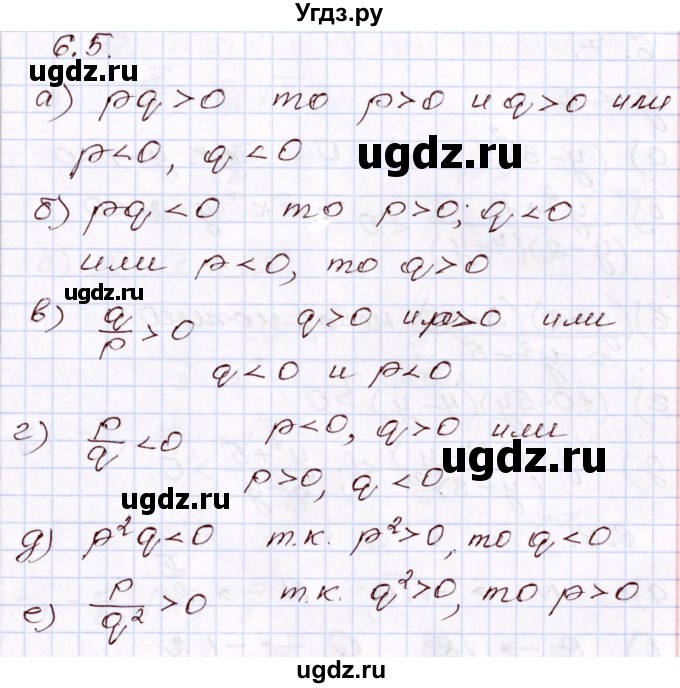 Угдз.ру
6.5.
ugdz.ru
а) pq > 0 то p > 0 и q > 0 или
p < 0, q < 0
ugdz.ru
б) pq < 0 то p > 0; q < 0
или p < 0, то q > 0
ugdz.ru
в) q/p > 0 q > 0 и p > 0 или
q < 0 и p < 0.
г) p/q < 0 p < 0, q > 0 или
ugdz.ru
p > 0, q < 0.
ugdz.ru
д) p²q < 0 т.к. p² > 0, то q < 0
е) p/q² > 0 т.к. q² > 0, то p > 0
ugdz.ru
ugdz.ru